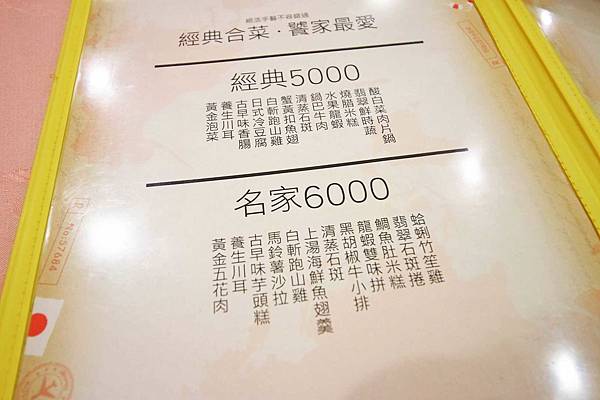 經活手藝不容錯過
經典合菜·饕家最愛
經典5000
酸白菜肉片鍋
翡翠鮮時蔬
燒腊米糕
水果龍蝦
鍋巴牛肉
清蒸石斑
蟹黃扣魚翅
白斬跑山雞
日式冷豆腐
古早味香腸
養生川耳
黃金泡菜
名家6000
蛤蜊竹笙雞
翡翠石斑捲
鯛魚肚米糕
龍蝦雙味拼
黑胡椒牛小排
清蒸石斑
上湯海鮮魚翅羹
白斬跑山雞
馬鈴薯沙拉
古早味芋頭糕
養生川耳
黃金五花肉
No.57684